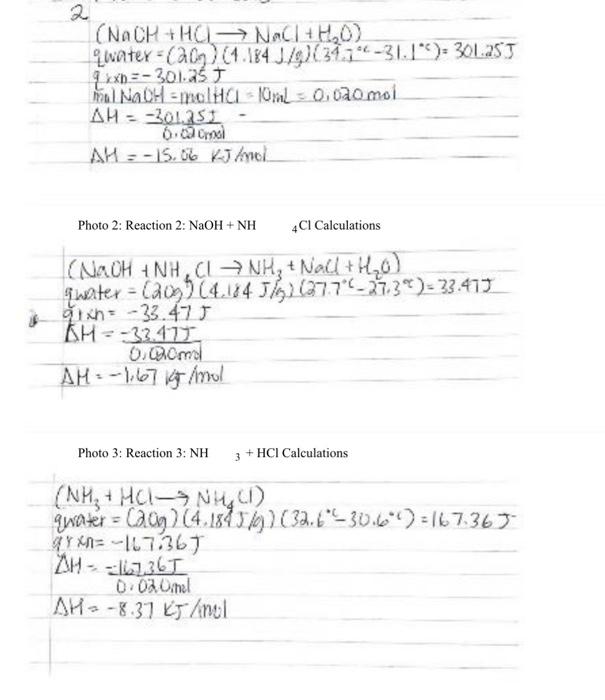 2
(NaOH + HCl → NaCl + H₂O)
qwater = (20g) (4.184 J/g) (34.7°C - 31.1°C) = 301.25 J
qrxn = -301.25 J
mol NaOH = mol HCl = 10mL = 0.020 mol
ΔH = -301.25J -
0.020mol
ΔH = -15.06 KJ/mol
Photo 2: Reaction 2: NaOH + NH 4 Cl Calculations
(NaOH + NH4Cl → NH3 + NaCl + H₂O)
qwater = (20g) (4.184 J/g) (27.7°C - 27.3°C) = 33.47J
qrxn = -33.47 J
ΔH = -33.47J
0.020mol
ΔH = -1.67 KJ/mol
Photo 3: Reaction 3: NH 3 + HCl Calculations
(NH3 + HCl → NH4Cl)
qwater = (20g) (4.184 J/g) (32.6°C - 30.6°C) = 167.36 J
qrxn = -167.36J
ΔH = -167.36J
0.020mol
ΔH = -8.37 KJ/mol